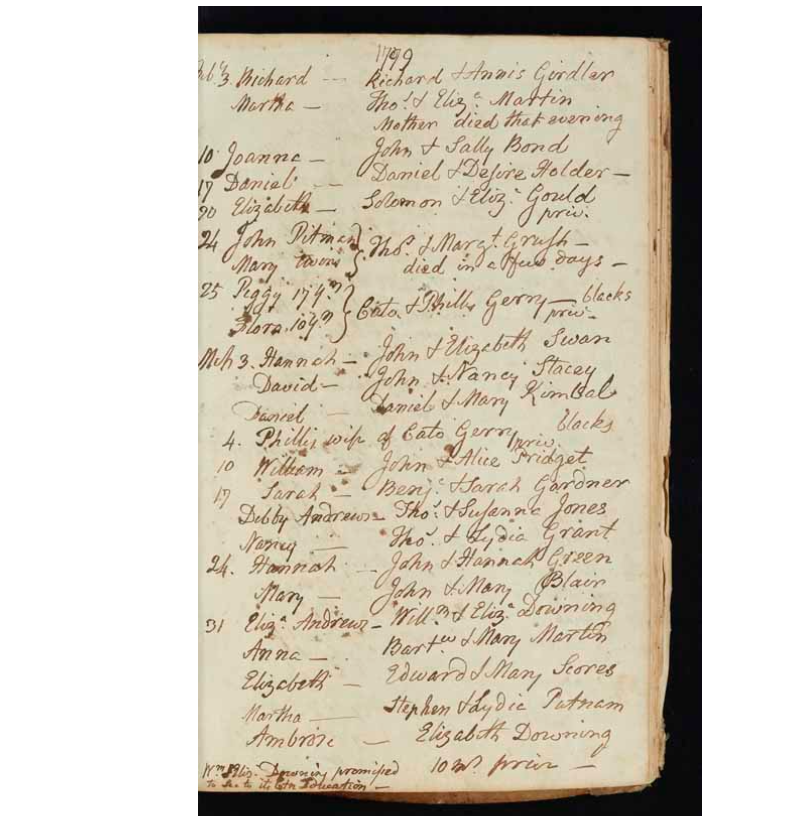 1799
Feb. 3. Richard — Richard & Annis Girdler
Martha — Tho.s & Eliz.a Martin
Mother died that evening
10 Joanna — John & Sally Bond
17 Daniel — Daniel & Desire Holder —
20 Elizabeth — Solomon & Eliz.a Gould
priv.
24 John Pitman } Tho.s & Marg.t Grush —
Mary twins } died in a few days —
25 Peggy 17 y.rs } Cato & Phillis Gerry — blacks
Flora. 10 y.rs } priv. —
Mch 3. Hannah — John & Elizabeth Swan
David — John & Nancy Stacey
Daniel — Daniel & Mary Kimbal
4. Phillis wife of Cato Gerry priv. blacks
10 William — John & Alice Pridget
17 Sarah — Benj.a & Sarah Gardner
Debby Andrews — Tho.s & Susanna Jones
Nancy — Tho.s & Lydia Grant
24. Hannah — John & Hannah Green
Mary — John & Mary Blair
31 Eliz.a Andrews — Will.m & Eliz.a Downing
Anna — Bart.w & Mary Martin
Elizabeth — Edward & Mary Scores
Martha — Stephen & Lydia Putnam
Ambrose — Elizabeth Downing
Wm & Eliz. Downing promised 10 priv —
to to its Education —